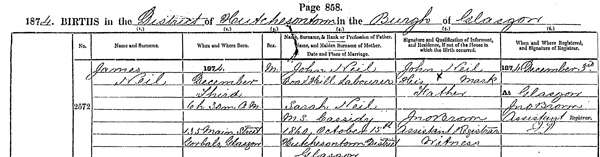 Page 858.
1874. BIRTHS in the District of Hutchesontown in the Burgh of Glasgow
No. Name and Surname. When and Where Born. Sex. Name, Surname, & Rank or Profession of Father. Name, and Maiden Surname of Mother. Date and Place of Marriage. Signature and Qualification of Informant, and Residence, if out of the House in which the Birth occurred. When and Where Registered, and Signature of Registrar.
James 1874. M. John Neil John Neil 1874 December 3rd
Neil December His x Mark
Third Father At Glasgow
2572 6h 30m A.M. Sarah Neil Jno Brown
M.S. Cassidy Assistant Registrar.
135 Main Street 1860, October 15th Assistant Registrar
Gorbals, Glasgow Hutchesontown District Witness
Glasgow